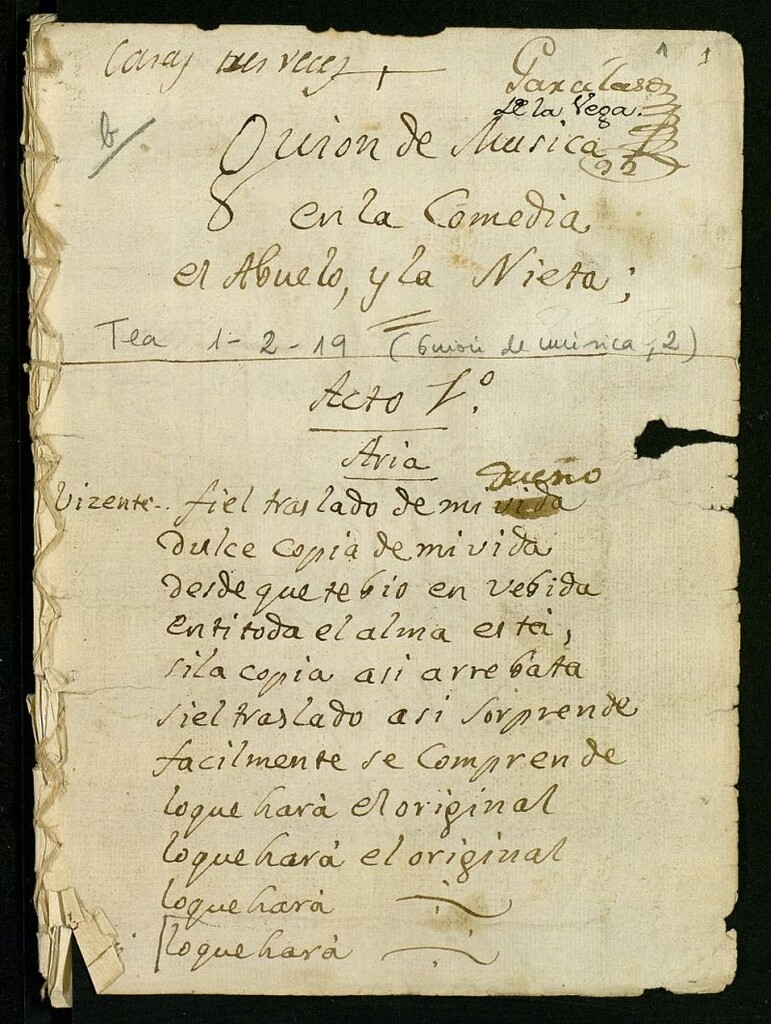 Casas tres veces
1 1
Garcilaso
de la Vega.
b
Quion de Musica
en la Comedia
el Abuelo, y la Nieta;
Tea 1-2-19 (Guión de música, 2)
Acto 1º.
Aria
dueño
Vizente.. fiel traslado de mi vida
Dulce copia de mi vida
desde que te bio en vebida
en ti toda el alma està,
si la copia asi arrebata
si el traslado asi sorprende
facilmente se Comprende
lo que harà el original
lo que harà el original
lo que harà
lo que harà